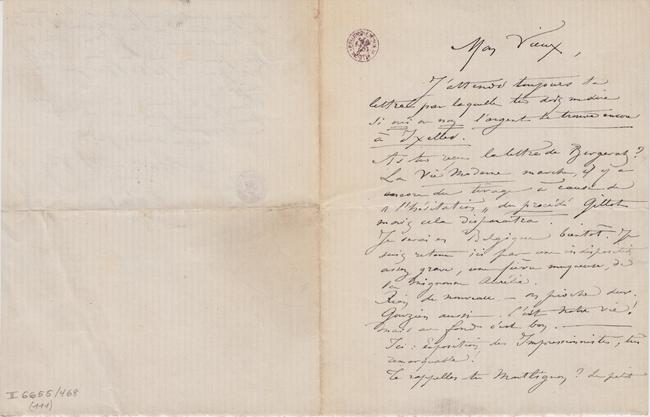 Mon Vieux,
J'attends toujours ta
lettre par laquelle tu dois me dire
si oui ou non l'argent se trouve encore
à Ixelles.
As tu reçu la lettre de Bergerat?
La Vie Moderne marche, il y a
encore du tirage à cause de
"l'hésitation" du procédé Gillot
mais cela disparaîtra.
Je serai en Belgique bientôt. Je
suis retenu ici par une indisposition
assez grave, une fièvre muqueuse, de
la mignonne Aurélie.
Rien de nouveau — on pioche dur.
Gouzien aussi. C'est notre vie!
mais au fond c'est bon.
Ici: exposition des Impressionnistes, très
remarquable!
Te rappelles tu Martignes? Le petit
II 6655/468
(111)